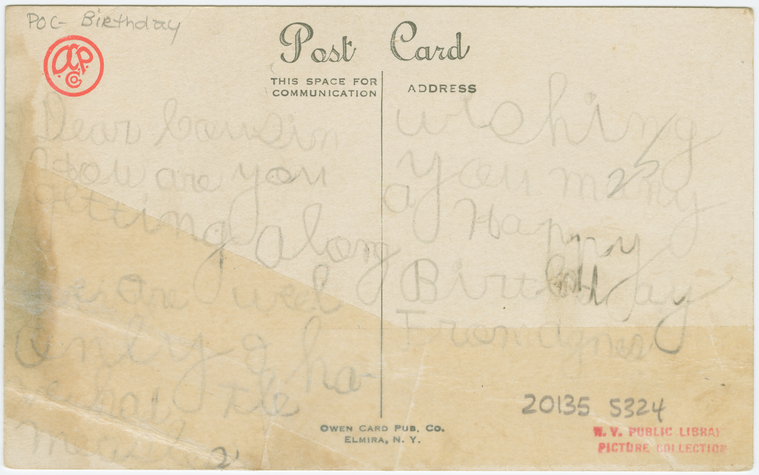 POC- Birthday
Post Card
THIS SPACE FOR
COMMUNICATION
ADDRESS
ACP
Co
Dear Cousin
How are you
getting along
we are well
only g ha
the
wishing
you many
a Happy
Birthday
From Agnes
25
20135 5324
OWEN CARD PUB. CO.
ELMIRA, N. Y.
N. Y. PUBLIC LIBRAR
PICTURE COLLECTION